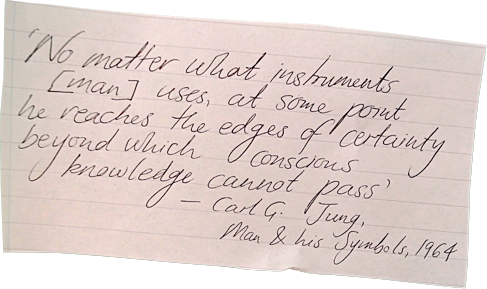 'No matter what instruments
[man] uses, at some point
he reaches the edges of certainty
beyond which conscious
knowledge cannot pass'
– Carl G. Jung,
Man & his Symbols, 1964